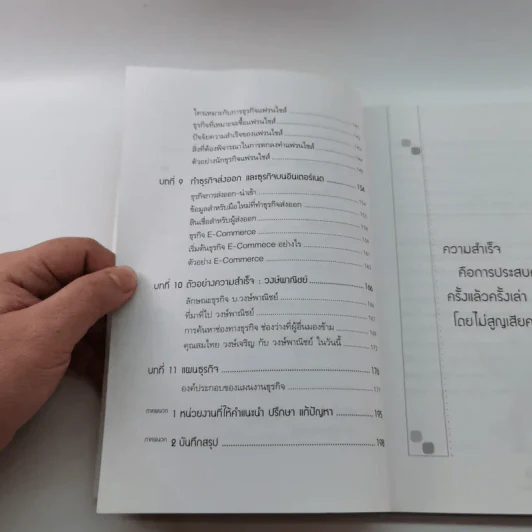 ใครเหมาะกับการธุรกิจแฟรนไชส์
ธุรกิจที่เหมาะจะซื้อแฟรนไชส์
ปัจจัยความสำเร็จของแฟรนไชส์
สิ่งที่ต้องพิจารณาในการตกลงทำแฟรนไชส์
ตัวอย่างนักธุรกิจแฟรนไชส์
บทที่ 9 ทำธุรกิจส่งออก และธุรกิจบนอินเตอร์เนต 154
ธุรกิจการส่งออก-นำเข้า
ข้อมูลสำหรับมือใหม่ที่ทำธุรกิจส่งออก
สินเชื่อสำหรับผู้ส่งออก
ธุรกิจ E-Commerce
เริ่มต้นธุรกิจ E-Commece อย่างไร
ตัวอย่าง E-Commerce
บทที่ 10 ตัวอย่างความสำเร็จ : วงษ์พาณิชย์ 166
ลักษณะธุรกิจ บ.วงษ์พาณิชย์
ที่มาที่ไป วงษ์พาณิชย์
การค้นหาช่องทางธุรกิจ ช่องว่างที่ผู้อื่นมองข้าม
คุณสมไทย วงษ์เจริญ กับ วงษ์พาณิชย์ ในวันนี้
บทที่ 11 แผนธุรกิจ 176
องค์ประกอบของแผนงานธุรกิจ 177
ภาคผนวก 1 หน่วยงานที่ให้คำแนะนำ ปรึกษา แก้ปัญหา 195
ภาคผนวก 2 บันทึกสรุป 198
ความสำเร็จ
คือการประสบ
ครั้งแล้วครั้งเล่า
โดยไม่สูญเสีย